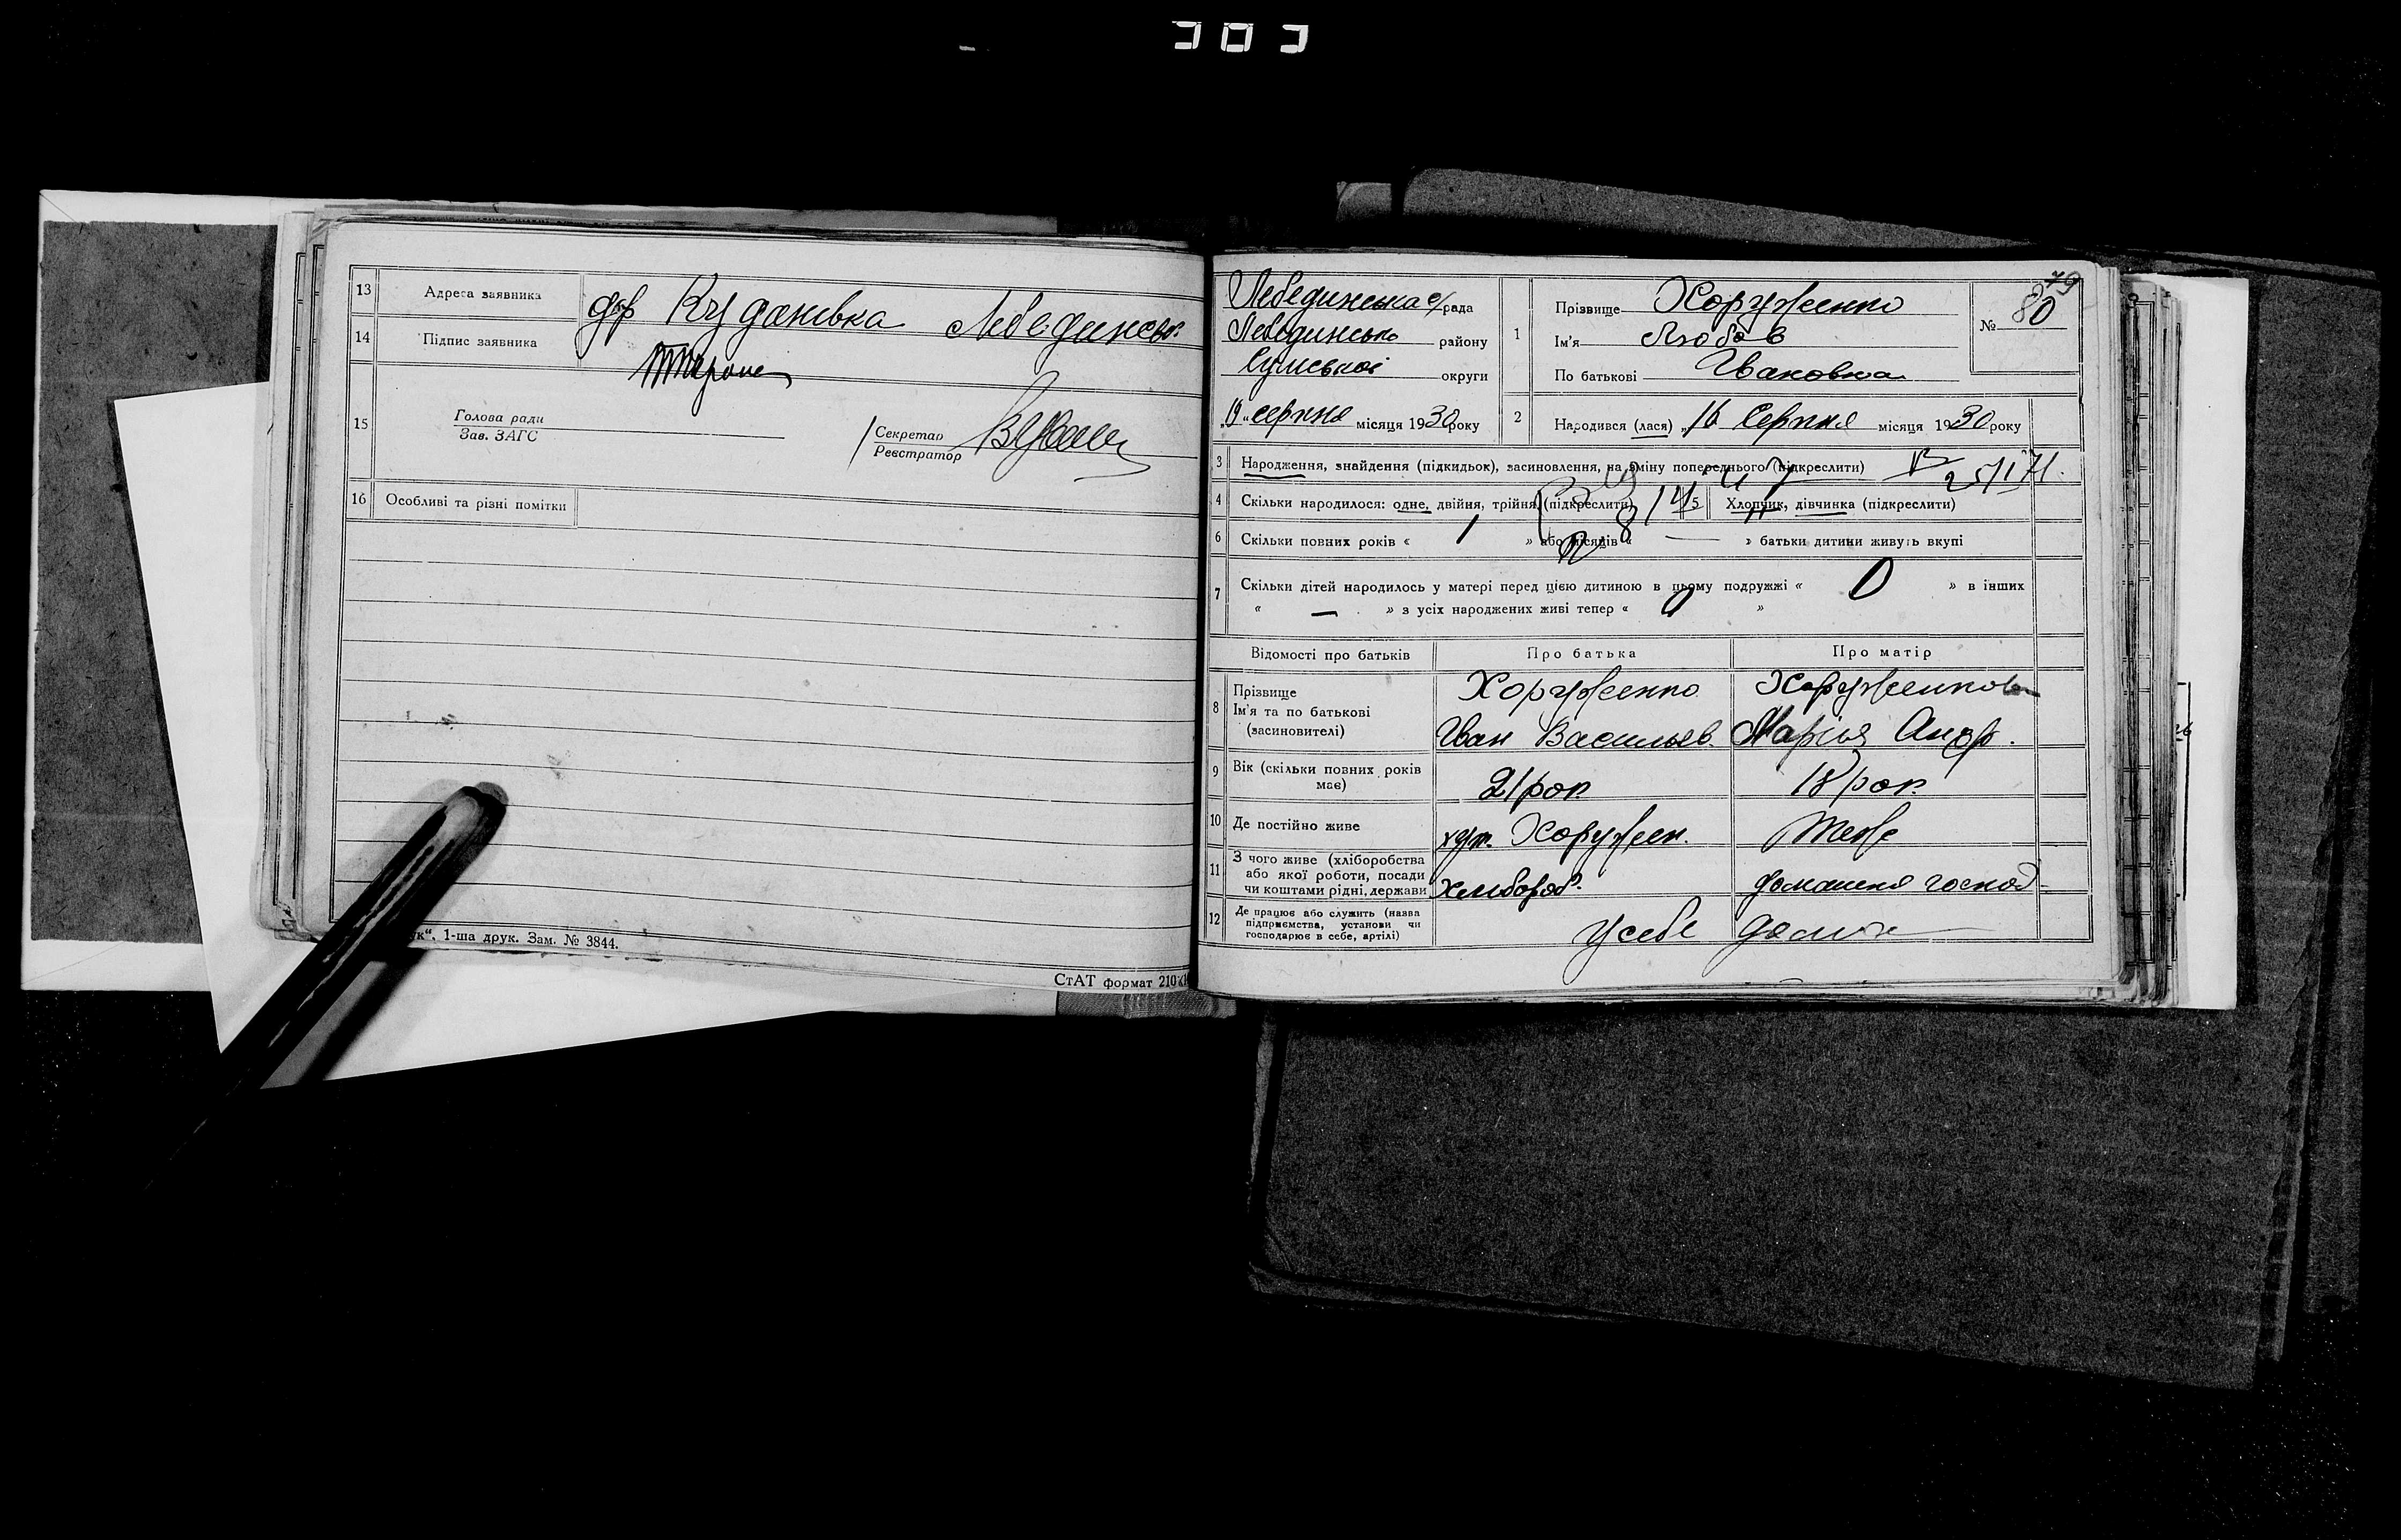 13 Адреса заявника дер Кудановка Лебединськ.
14 Підпис заявника
15 Голова ради
Зав. ЗАГС
Секретар
Реєстратор
16 Особливі та різні помітки
ук“, 1-ша друк. Зам. № 3844.
СтАТ формат 210
Лебединська с/рада
Лебединськ району
Сумської округи
„19“ серпня місяця 1930 року
79
№ 80
1 Прізвище Хоруженко
Ім'я Любов
По батькові Івановна
2 Народився (лася) „16 Серпня місяця 1930 року
3 Народження, знайдення (підкидьок), засиновлення, на зміну попереднього (підкреслити)
4 Скільки народилося: одне, двійня, трійня (підкреслити) 5 Хлопчик, дівчинка (підкреслити)
6 Скільки повних років « 1 » або місяців « — » батьки дитини живуть вкупі
7 Скільки дітей народилось у матері перед цією дитиною в цьому подружжі « 0 » в інших
« — » з усіх народжених живі тепер « 0 »
Відомості про батьків Про батька Про матір
8 Прізвище Хоруженко Хоруженкова
Ім'я та по батькові
(засиновителі) Іван Васильєв. Марія Андр.
9 Вік (скільки повних років
має) 21 рок 18 рок
10 Де постійно живе хут. Хоружен. Теж
11 З чого живе (хліборобства
або якої роботи, посади
чи коштами рідні, держави) Хлібороб. домашня господ
12 Де працює або служить (назва
підприємства, установи чи
господарює в себе, артілі) У себе дома